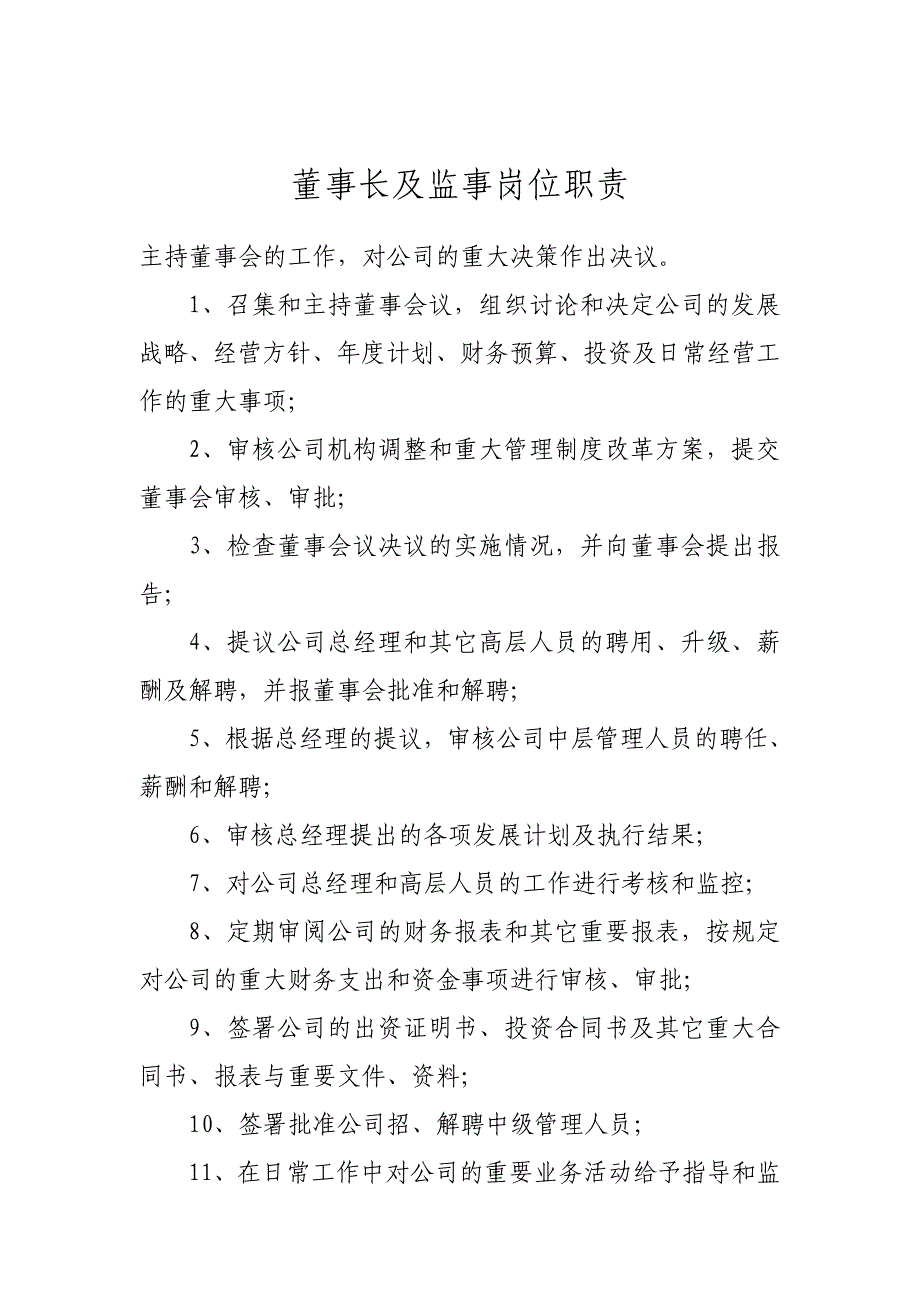 董事长及监事岗位职责
主持董事会的工作，对公司的重大决策作出决议。
1、召集和主持董事会议，组织讨论和决定公司的发展
战略、经营方针、年度计划、财务预算、投资及日常经营工
作的重大事项；
2、审核公司机构调整和重大管理制度改革方案，提交
董事会审核、审批；
3、检查董事会议决议的实施情况，并向董事会提出报
告；
4、提议公司总经理和其它高层人员的聘用、升级、薪
酬及解聘，并报董事会批准和解聘；
5、根据总经理的提议，审核公司中层管理人员的聘任、
薪酬和解聘；
6、审核总经理提出的各项发展计划及执行结果；
7、对公司总经理和高层人员的工作进行考核和监控；
8、定期审阅公司的财务报表和其它重要报表，按规定
对公司的重大财务支出和资金事项进行审核、审批；
9、签署公司的出资证明书、投资合同书及其它重大合
同书、报表与重要文件、资料；
10、签署批准公司招、解聘中级管理人员；
11、在日常工作中对公司的重要业务活动给予指导和监